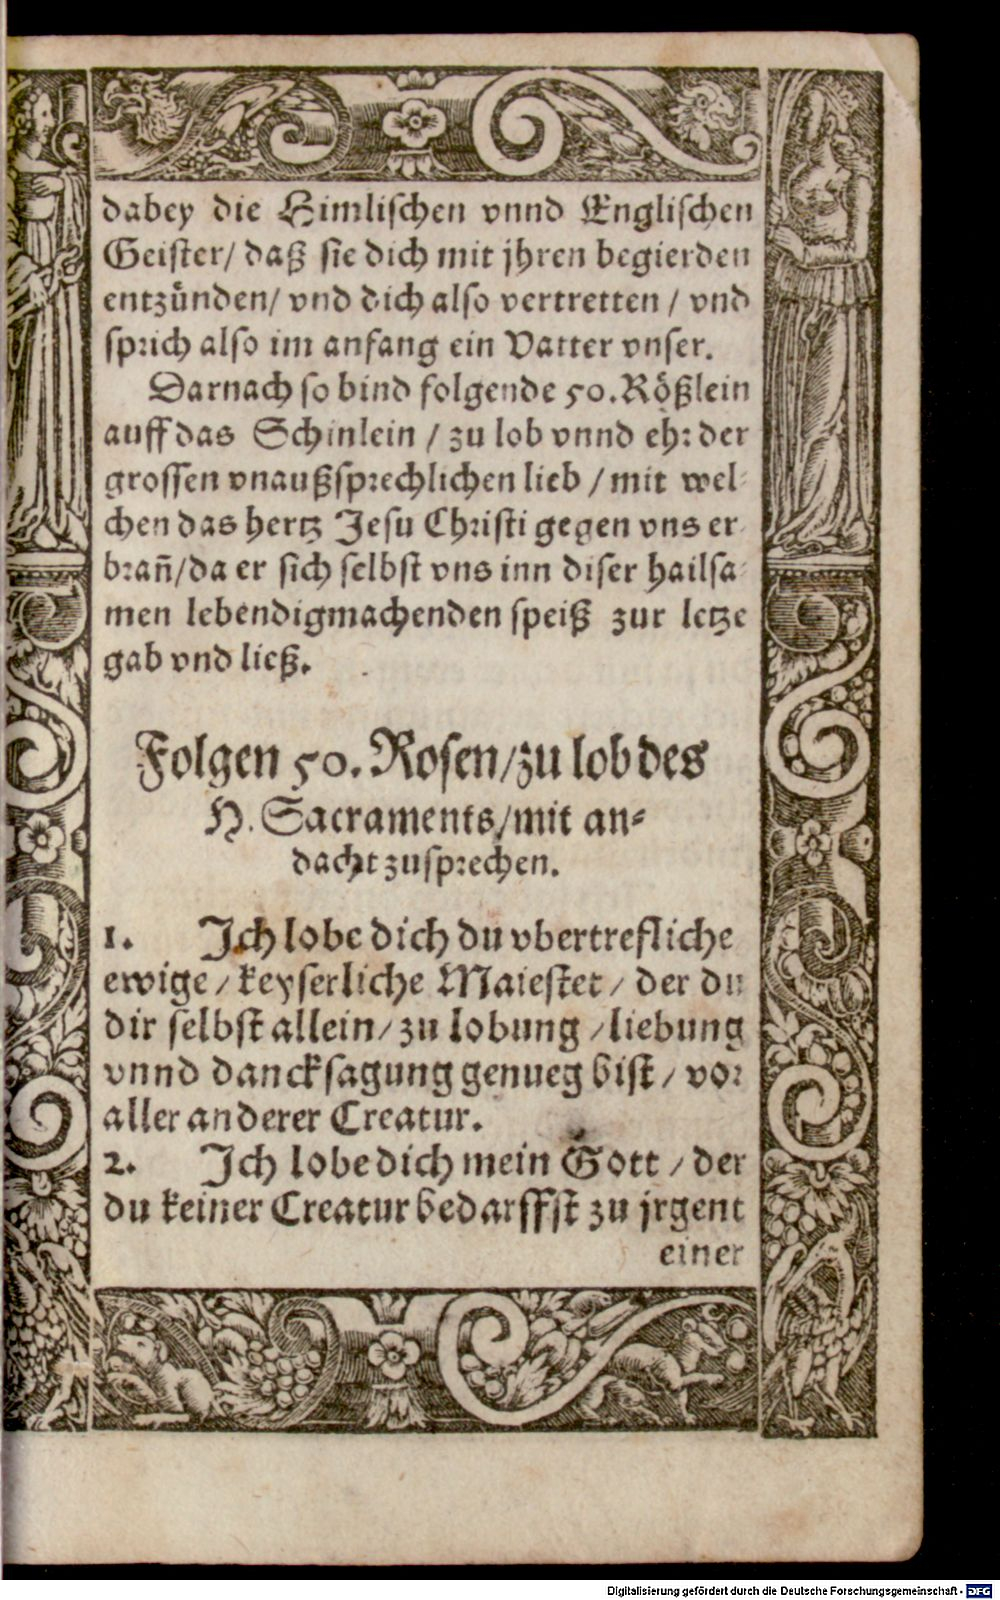 dabey die Himlischen vnnd Englischen
Geister/ daß sie dich mit jhren begierden
entzünden/ vnd dich also vertretten / vnd
sprich also im anfang ein Vatter vnser.
Darnach so bind folgende 50. Rößlein
auff das Schinlein / zu lob vnnd ehr der
grossen vnaußsprechlichen lieb / mit wel-
chen das hertz Jesu Christi gegen vns er-
brañ/da er sich selbst vns inn diser hailsa-
men lebendigmachenden speiß zur letze
gab vnd ließ.
Folgen 50. Rosen/zu lob des
H. Sacraments/mit an-
dacht zusprechen.
1. Ich lobe dich du vbertrefliche
ewige / keyserliche Maiestet / der du
dir selbst allein/ zu lobung /liebung
vnnd dancksagung genueg bist / vor
aller anderer Creatur.
2. Ich lobe dich mein Gott / der
du keiner Creatur bedarffst zu jrgent
einer
Digitalisierung gefördert durch die Deutsche Forschungsgemeinschaft - DFG